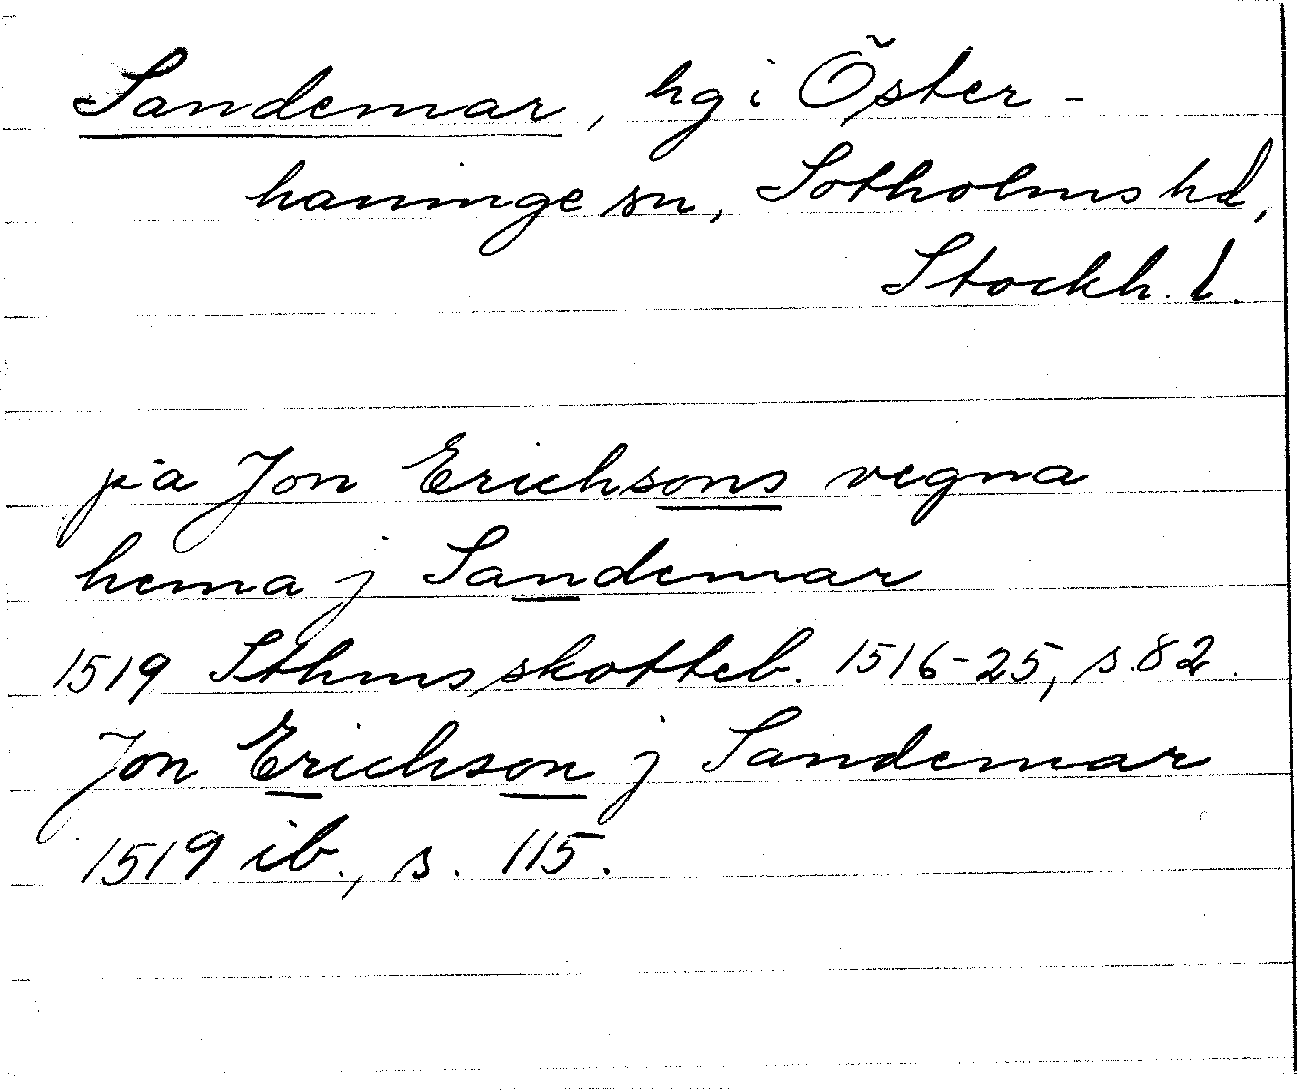 Sandemar, hg i Öster-
haninge sn, Sotholms hd,
Stockh. l.
pa Jon Erichsons vegna
hema j Sandemar
1519 Sthms skotteb. 1516-25, s. 82.
Jon Erichson j Sandemar
1519 ib., s. 115.